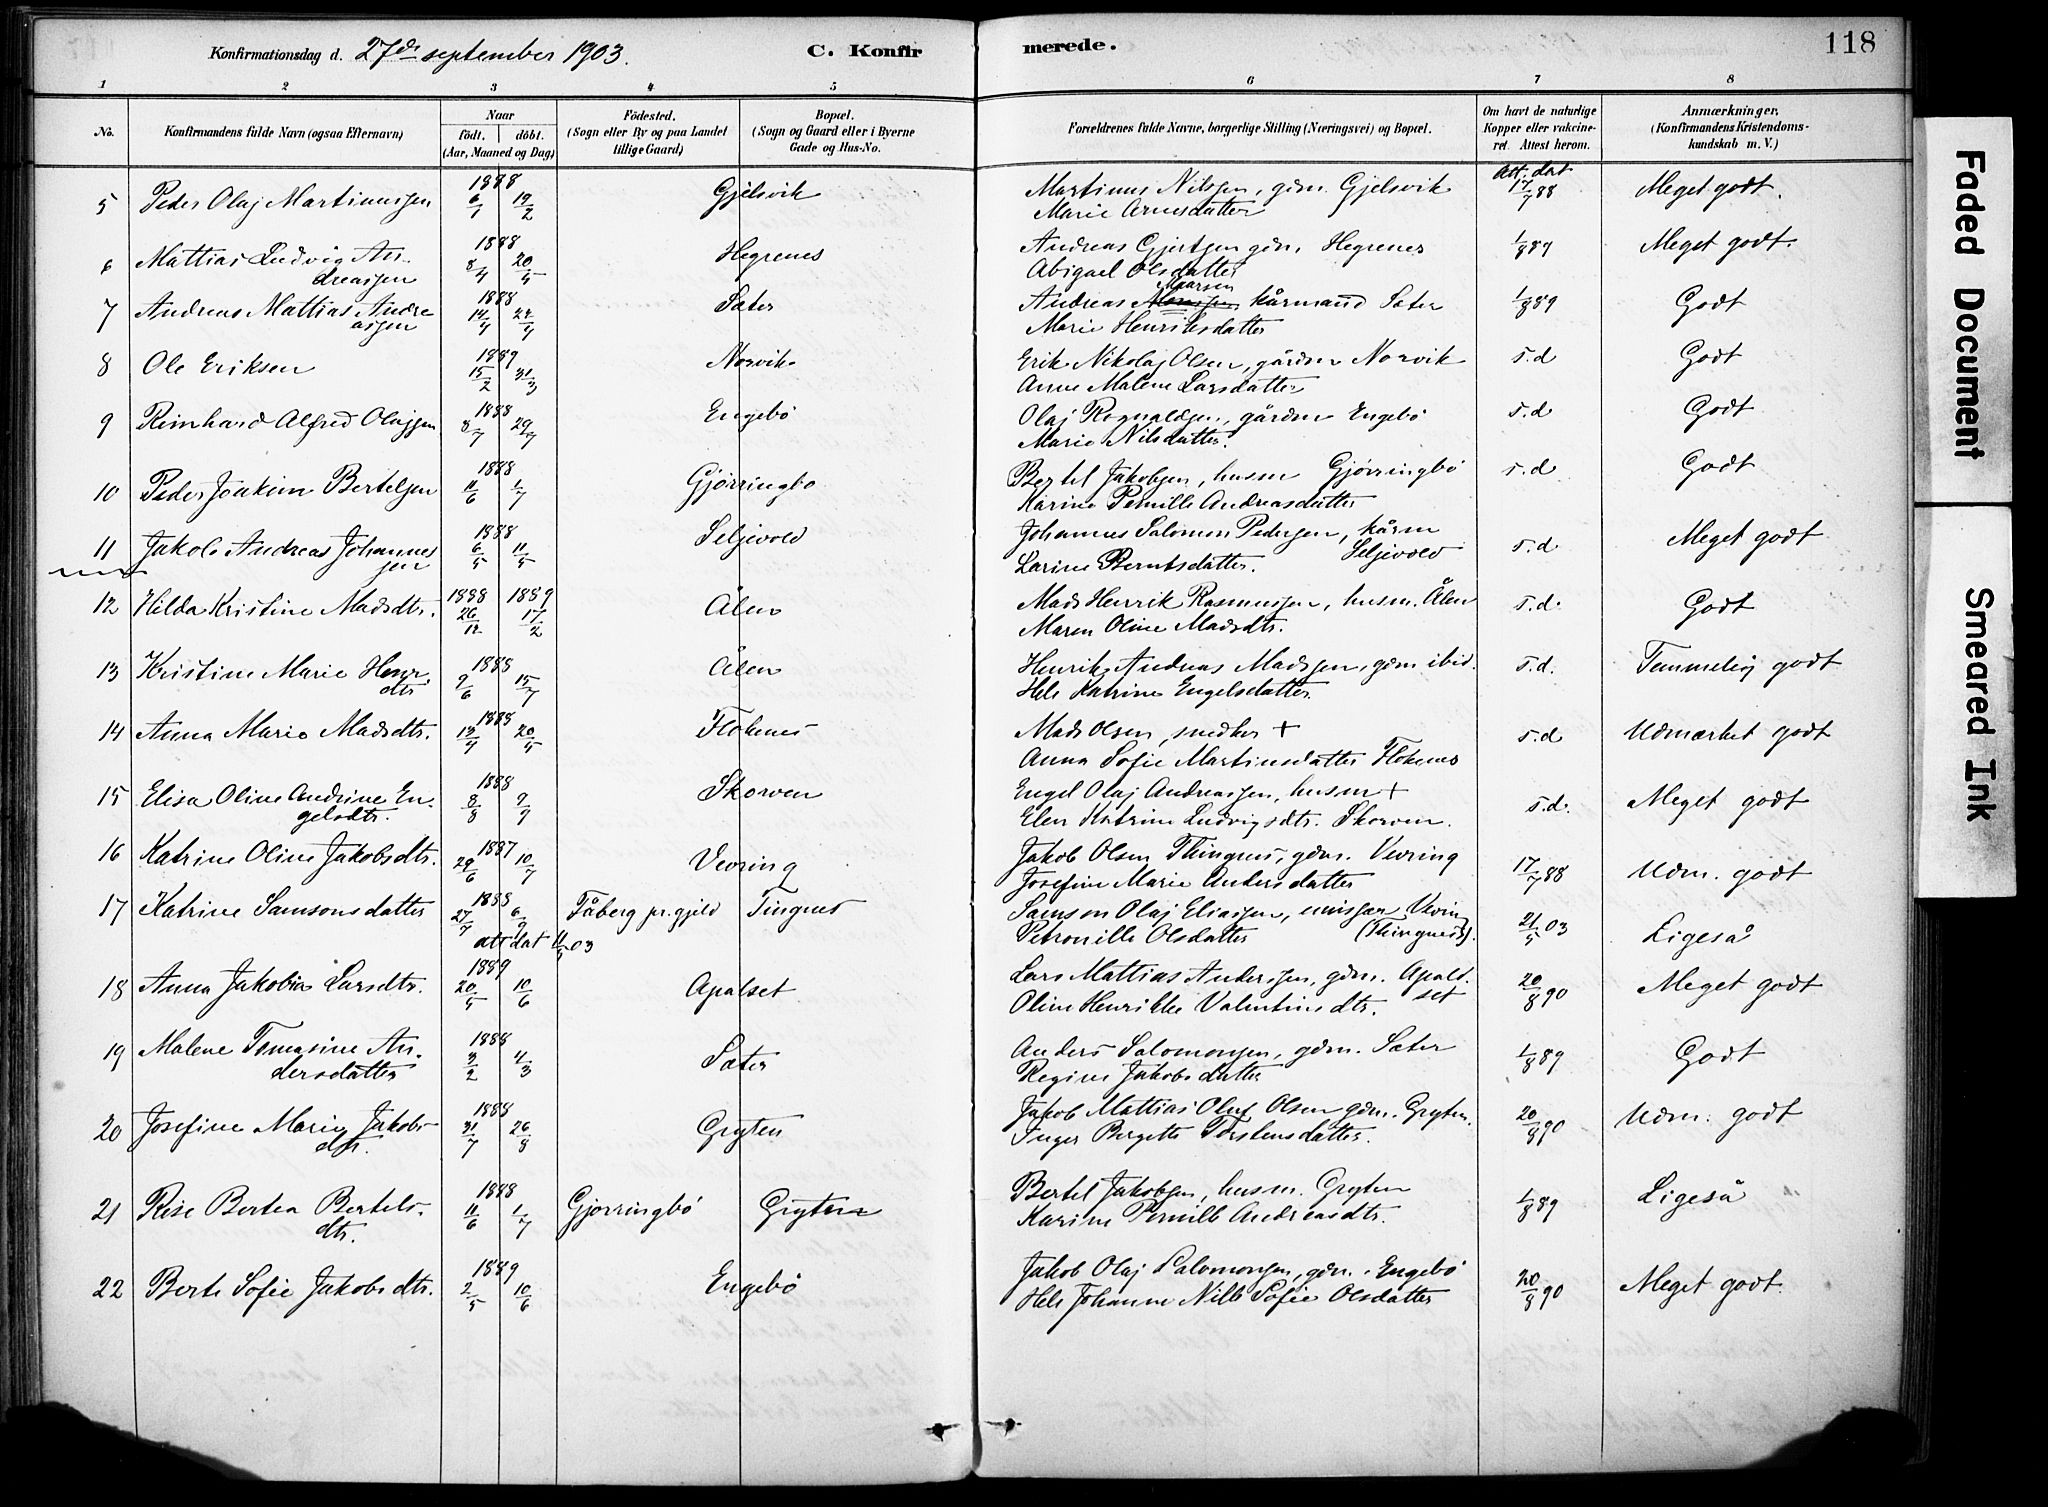 Konfirmationsdag d. 27de september 1903. C. Konfirmerede. 118
1 2 3 4 5 6 7 8
No. Konfirmandens fulde Navn (ogsaa Efternavn) Naar födt. döbt. (Aar, Maaned og Dag) Födested. (Sogn eller By og paa Landet tillige Gaard) Bopæl. (Sogn og Gaard eller i Byerne Gade og Hus-No. Forældrenes fulde Navne, borgerlige Stilling (Næringsvei) og Bopæl. Om havt de naturlige Kopper eller vakcineret. Attest herom. Anmærkninger. (Konfirmandens Kristendomskundskab m. V.)
5 Peder Olaj Martinussen 1888 6/1 19/2 Gjelsvik Martinus Nilssen, gdm. Gjelsvik att. dat 17/7 88 Meget godt.
Marie Arnesdatter
6 Mattias Ludvig An- 1888 8/4 20/5 Hegrenes Andreas Gjertsen gdm. Hegrenes 1/8 89 Meget godt.
dreassen Abigael Olsdatter
7 Andreas Mattias Andre 1888 14/4 22/4 Sater Andreas Maarsen kårmand Sater 1/8 89 Godt
assen Marie Henriksdatter
8 Ole Eriksen 1889 15/2 31/3 Norvik Erik Nikolaj Olsen, gårdm Norvik s.d Godt
Anne Malene Larsdatter
9 Reinhard Alfred Olajsen 1888 8/7 29/7 Engebö Olaj Rognaldsen, gårdm Engebö s.d Godt
Marie Nilsdatter.
10 Peder Joakim Bertelsen 1888 11/6 1/7 Gjörringbo Bertel Jakobsen, husm Gjörringbö s.d Godt
Karine Pernille Andreasdatter
11 Jakob Andreas Johannes 1888 6/5 11/5 Seljevold Johannes Salomon Pedersen, kårm s.d Meget godt
sen Larine Berntsdatter. Seljevold
12 Hilda Kristine Madsdtr. 1888 26/12 1889 17/2 Ålen Mads Henrik Rasmussen, husm. Ålen s.d. Godt
Maren Oline Madsdtr.
13 Kristine Marie Henr. 1888 9/6 15/7 Ålen Henrik Andreas Madssen, gdm ibid. s.d. Temmelig godt
dtr Hele Katrine Engelsdatter.
14 Anna Marie Madsdtr. 1888 13/4 20/5 Flokenes Mads Olsen, snedker + s.d Udmærket godt
Anna Sofie Martinusdatter Flokenes
15 Elisa Oline Andrine En- 1888 8/8 9/9 Skorven Engel Olaj Andreassen, husm + s.d. Meget godt
gelsdtr. Elen Katrine Ludvigsdtr. Skorven.
16 Katrine Oline Jakobsdtr. 1887 29/6 10/7 Vevring Jakob Olsen Thingnes, gdm. Vevring 17/7 88 Udm. godt
Josefine Marie Andersdatter
17 Katrine Samsonsdatter 1888 27/7 6/9 Fåberg pr.gjeld Tingnes Samson Olaj Eliassen, emissær Vevring 21/5 03 Ligeså
att dat 11/5 03 Petronille Olsdatter (Thingnes).
18 Anna Jakobia Larsdtr. 1889 20/5 10/6 Apalset Lars Mattias Anderssen, gdm. Apalset 20/8 90 Meget godt
Oline Henrikke Valentinsdtr.
19 Malene Tomasine An- 1888 3/2 4/3 Sater Anders Salomonsen, gdm. Sater 1/8 89 Godt
dersdatter Regine Jakobsdatter
20 Josefine Marie Jakobs- 1888 31/7 26/8 Gryten Jakob Mattias Oluf Olsen gdm. Gryten. 20/8 90 Udm. godt
dtr. Inger Bergette Torstensdatter.
21 Rise Bertea Bertels- 1888 11/6 1/7 Gjörringbö Gryten Bertel Jakobsen, husm. Gryten 1/8 89 Ligeså
dtr. Karine Pernille Andreasdtr.
22 Berte Sofie Jakobsdtr. 1889 2/5 10/6 Engebö Jakob Olaj Salomonsen, gdm. Engebö 20/8 90 Meget godt.
Hele Johanne Nille Sofie Olsdatter
Faded Document
Smeared Ink